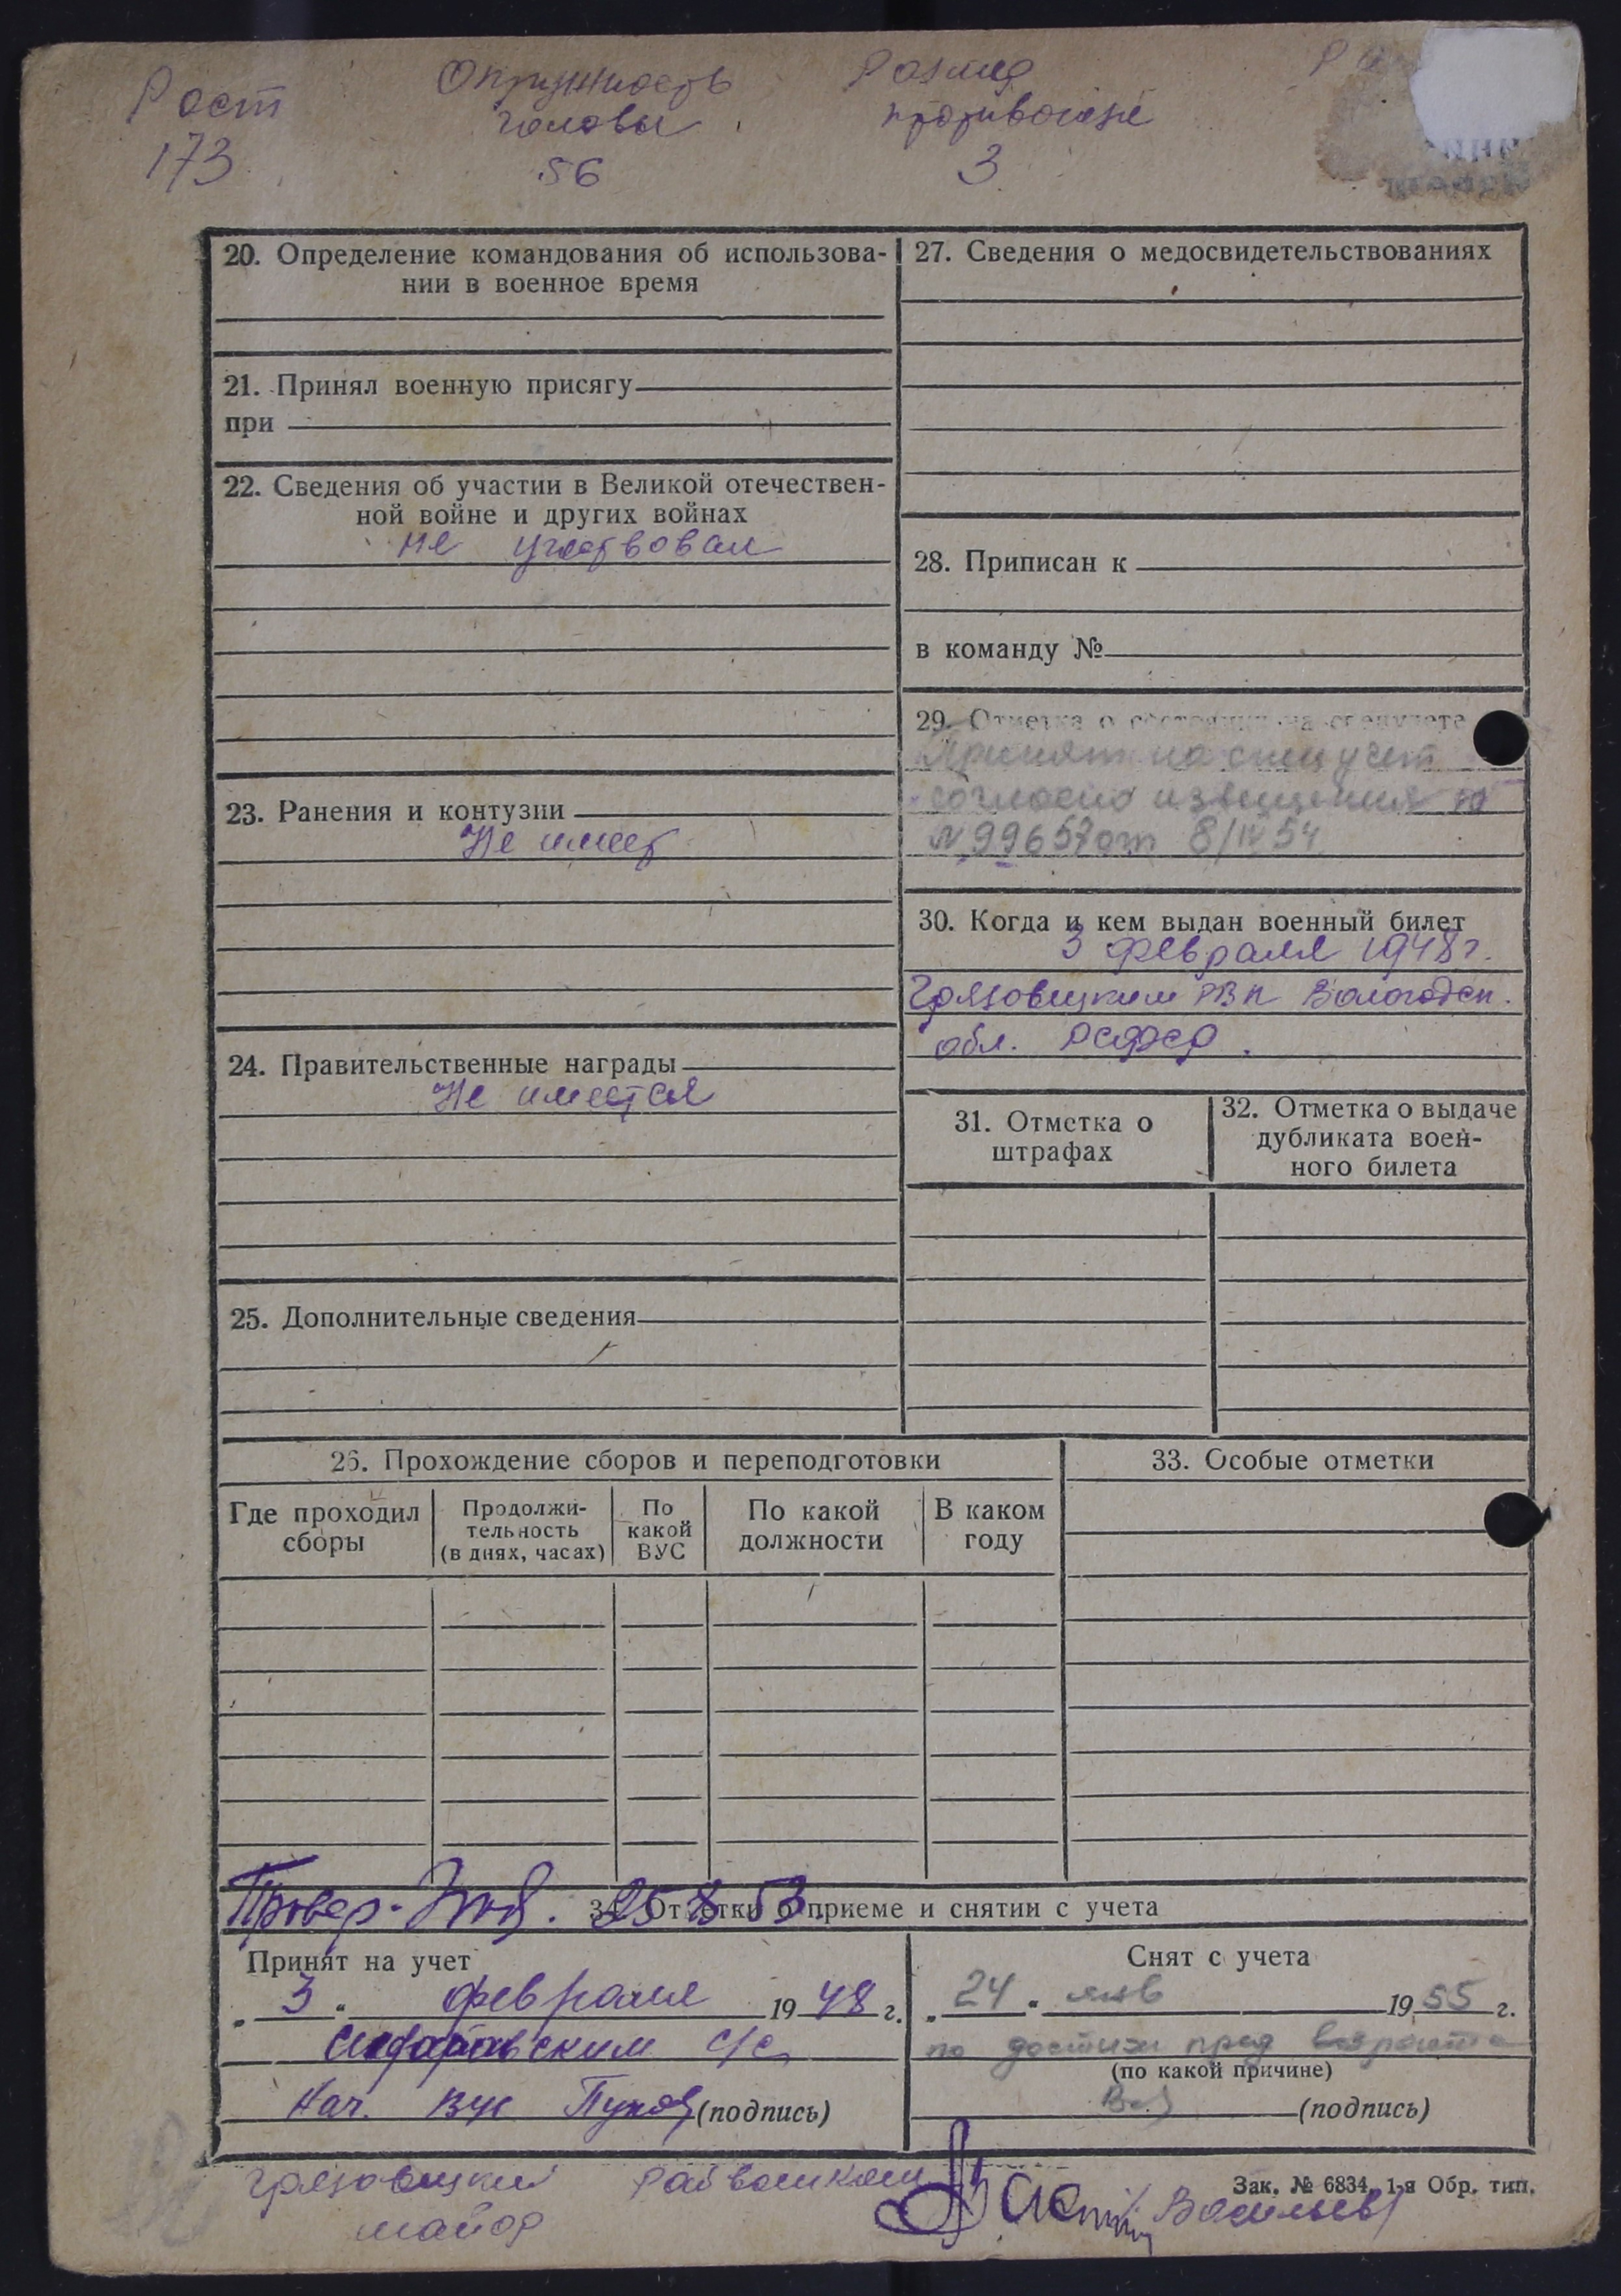 Рост
173
Окружность
головы
56
Размер
противогаза
3
Р
20. Определение командования об использова-
нии в военное время
21. Принял военную присягу
при
22. Сведения об участии в Великой отечествен-
ной войне и других войнах
не участвовал
23. Ранения и контузии
Не имеет
24. Правительственные награды
Не имеется
25. Дополнительные сведения
27. Сведения о медосвидетельствованиях
28. Приписан к
в команду №
29. Отметка о состоянии на спецучете
Принят на спец учет
согласно извещения
N 99657 от 8/IV 54
30. Когда и кем выдан военный билет
3 февраля 1948 г.
Грязовецким РВК Вологодск.
обл. РСФСР.
31. Отметка о
штрафах
32. Отметка о выдаче
дубликата воен-
ного билета
26. Прохождение сборов и переподготовки
Где проходил
сборы
Продолжи-
тельность
(в днях, часах)
По
какой
ВУС
По какой
должности
В каком
году
33. Особые отметки
Провер- 25 53
34. Отметки о приеме и снятии с учета
Принят на учет
„ 3 " февраля 1948 г.
с/с
Нач. ВУС (подпись)
Снят с учета
„ 24 " янв 1955 г.
по достиж пред возраста
(по какой причине)
(подпись)
Грязовецкий Райвоенком
майор Васильев
Зак. № 6834, 1-я Обр. тип.